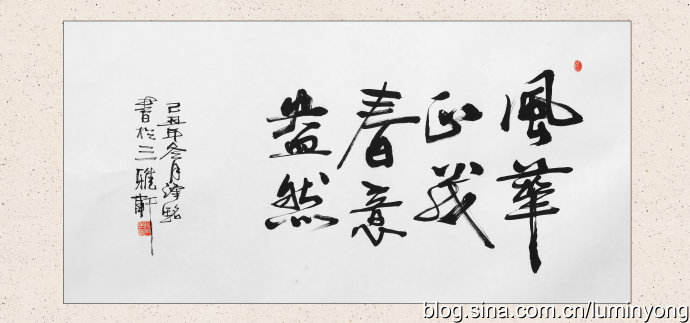 風華
正茂
春意
盎然
己丑年冬月
書於三雅軒
blog.sina.com.cn/luminyong